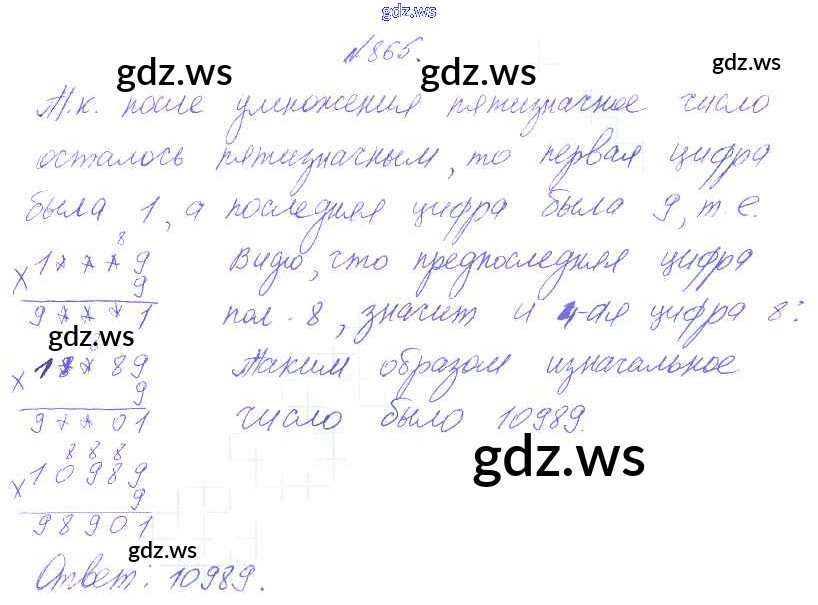 gdz.ws
№865.
gdz.ws gdz.ws gdz.ws
Т.к. после умножения пятизначное число
осталось пятизначным, то первая цифра
была 1, а последняя цифра была 9, т.е.
8
1***9 Видно, что предпоследняя цифра
× 9
9***1 пол. 8, значит и 4-ая цифра 8:
gdz.ws
1**89 Таким образом изначальное
× 9
9**01 число было 10989.
8 8 8
10989
× 9
98901
gdz.ws
gdz.ws
Ответ: 10989.
gdz.ws